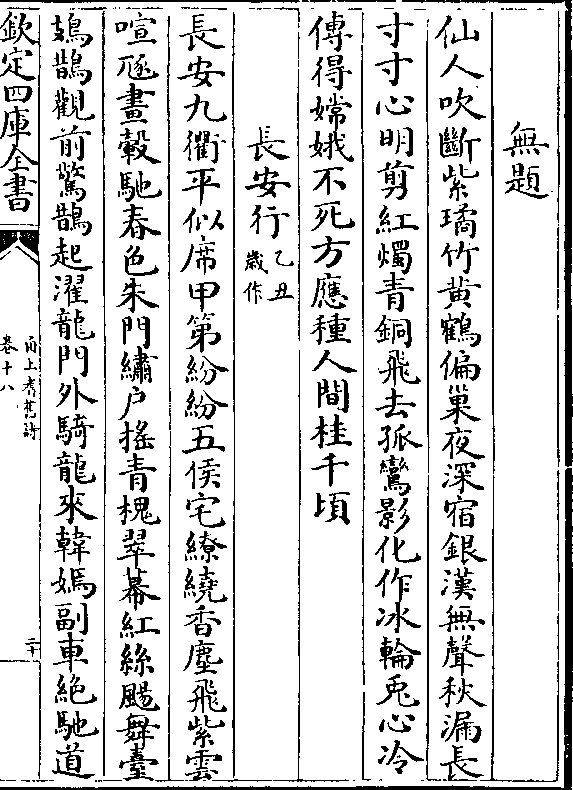 無題
仙人吹斷紫璚竹黄鶴偏巢夜深宿銀漢無聲秋漏長
寸寸心明剪紅燭青銅飛去孤鸞影化作冰輪兎心冷
傳得嫦娥不死方應種人間桂千頃
長安行乙丑歲作
長安九衢平似席甲第紛紛五侯宅繚繞香塵飛紫雲
喧豗畫轂馳春色朱門繡户摇青槐翠幕紅絲颺舞臺
鳷鵲觀前驚鵲起濯龍門外騎龍來韓嫣副車絶馳道
欽定四庫全書
甬上耆舊詩
卷十八
二十